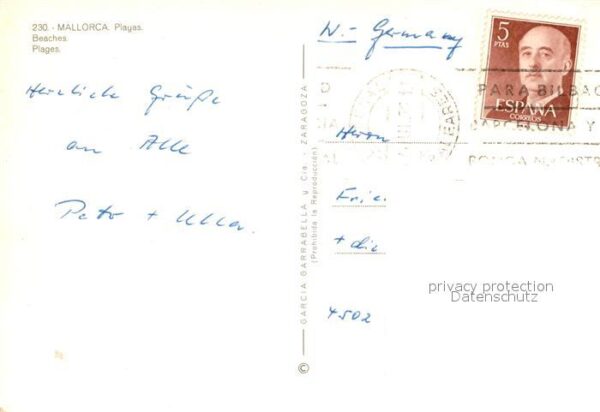 230. - MALLORCA. Playas.
Beaches.
Plages.
W.- Germany
5
PTAS
ESPAÑA
CORREOS
PARA BILBAO
BARCELONA Y
Herzliche Grüße
an Alle
Peter + Ulla.
GARCIA GARRABELLA y Cia. - ZARAGOZA
(Prohibida la Reproducción)
©
Herrn
+ die
4502
privacy protection
Datenschutz